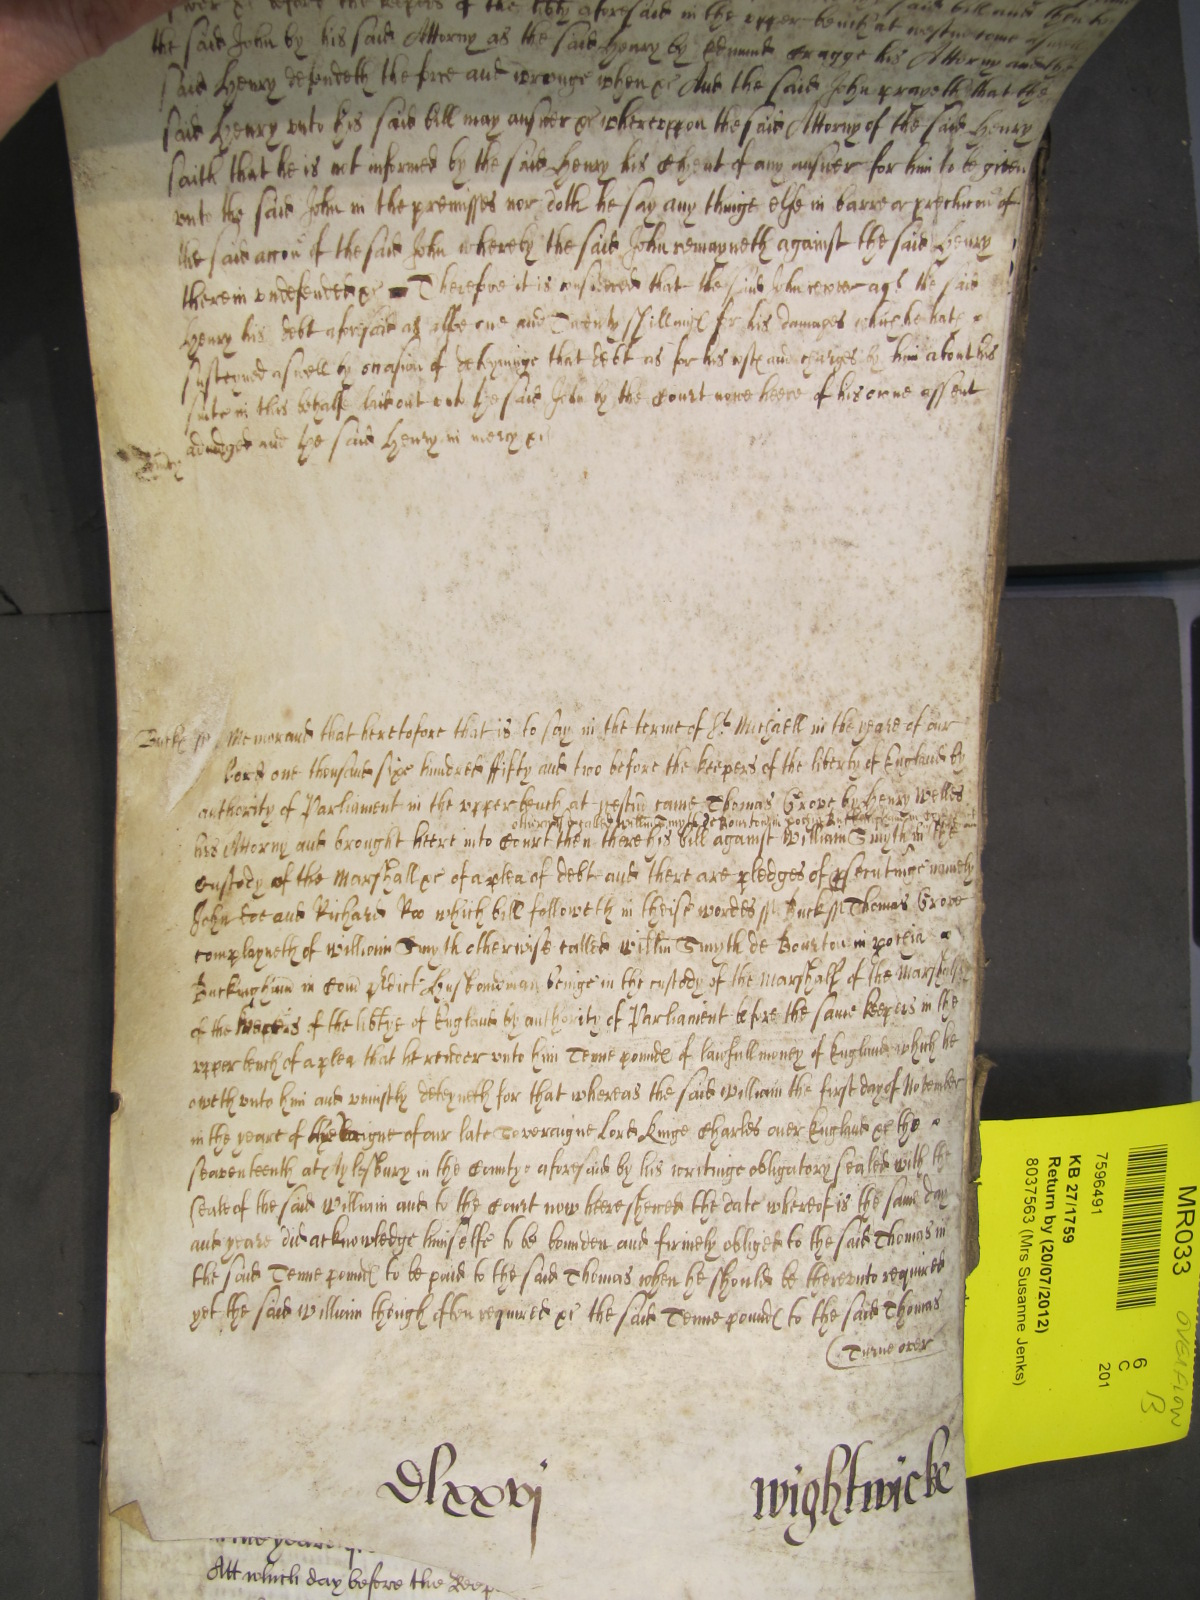 the said John by his said Attorny as the said Henry by Edmund Cragge his Attorny and the
said Henry defendeth the force and wronge when &c And the said John prayeth that the
said Henry unto his said bill may answer &c whereuppon the said Attorny of the said Henry
saith that he is not informed by the said Henry his Clyent of any answer for him to be given
unto the said John in the premisses nor doth he say any thinge else in barre or preclucon of
the said accon of the said John whereby the said John remayneth against the said Henry
therein undefended &c Therefore it is considered that the said John recover agt the said
Henry his debt aforesaid as alsoe one and Twenty shillings for his damages which he hath
susteyned aswell by occasion of deteyninge that debt as for his costs and charges by him about his
suite in this behalfe laid out unto the said John by the Court nowe heere of his owne assent
adiudged and the said Henry in mercy &c
Bucks ss Memorand that heretofore that is to say in the terme of St Michaell in the yeare of our
Lord one thousand sixe hundred fifty and two before the keepers of the liberty of England by
authority of Parliament in the upper bench at westm came Thomas Grove by Henry Welles
otherwise called Willm Smyth de Bourton in
his Attorny and brought heere into Court then there his bill against William Smyth in the
Custody of the Marshall &c of a plea of debt and there are pledges of psecutinge namely
John Doe and Richard Roo which bill followeth in theise wordes ss Bucks ss Thomas Grove
complayneth of William Smyth otherwise called Willm Smyth de Bourton in pochia
Buckingham in Com pdict Husbondman beinge in the custody of the Marshall of the Marshalsy
of the keepers of the libtye of England by authority of Parliament before the same keepers in the
upper bench of a plea that he render unto him Tenne pounds of lawfull money of England which he
oweth unto him and uniustly deteyneth for that whereas the said William the first day of November
in the yeare of the Raigne of our late Soveraigne Lord Kinge Charles over England &c the
seaventeenth at Aylesbury in the County aforesaid by his writinge obligatory sealed with the
seale of the said William and to the Court now heere shewed the date whereof is the same day
and yeare did acknowledge himselfe to be bounden and firmely obliged to the said Thomas in
the said Tenne pounds to be paid to the said Thomas when he should be thereunto required
yet the said William though often required &c the said Tenne pounds to the said Thomas
Turne over
dlxxvj
wightwicke
Att which day before the Keep
MR033
OVERFLOW
13
7596491
6
C
201
KB 27/1759
Return by (20/07/2012)
8037563 (Mrs Susanne Jenks)